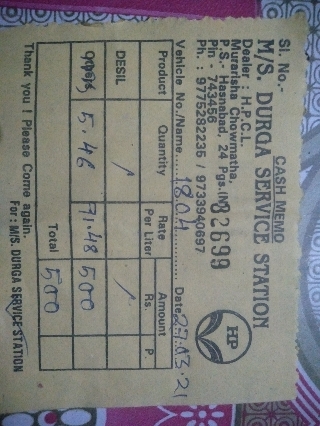 Sl. No.- CASH MEMO
M/S. DURGA SERVICE STATION
Dealer : H.P.C.L.
Murarisha Chowmatha,
P.S.- Hasnabad, 24 Pgs.(N)
Pin - 743456
Ph. : 9775282235 / 9733940697
82699
HP
Vehicle No./Name 180A Date 27.03.21
Product Quantity Rate Per Liter Amount Rs. P.
DESIL
5.46 91.48 500
Total 500
Thank you ! Please Come again.
For : M/S. DURGA SERVICE STATION